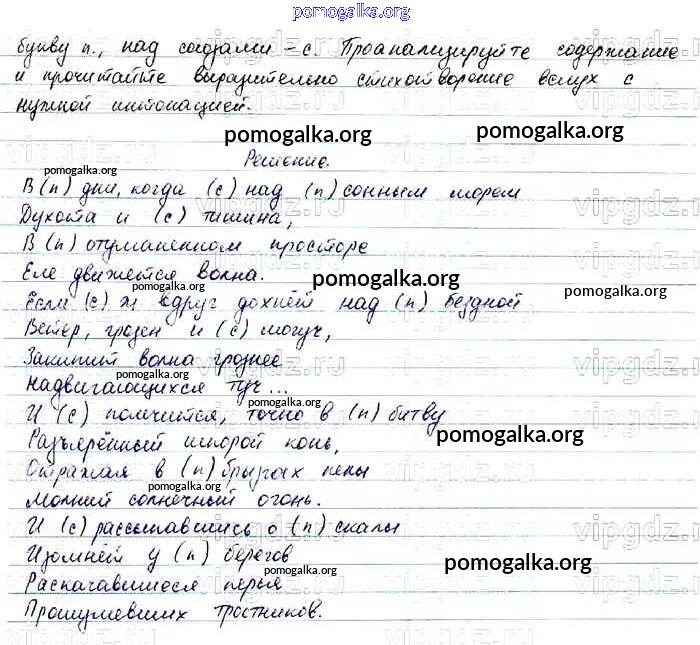 pomogalka.org
букву п., над союзами – с. Проанализируйте содержание
и прочитайте выразительно стихотворение вслух с
нужной интонацией.
pomogalka.org pomogalka.org
Решение.
pomogalka.org
В (п) дни, когда (с) над (п) сонным морем
Духота и (с) тишина,
В (п) отуманенном просторе
Еле движется волна. pomogalka.org
pomogalka.org
Если (с) ж вдруг дохнёт над (п) бездной
Ветер, грозен и (с) могуч,
Закипит волна грознее
pomogalka.org
Надвигающихся туч...
pomogalka.org
И (с) помчится, точно в (п) битву
Разъярённый шпорой конь,
pomogalka.org
Отражая в (п) брызгах пены
pomogalka.org
Молний солнечный огонь.
И (с) рассыпавшись о (п) скалы
Изомнёт у (п) берегов
pomogalka.org pomogalka.org
Раскачавшиеся перья
Прошумевших тростников.
pomogalka.org
vipgdz.ru